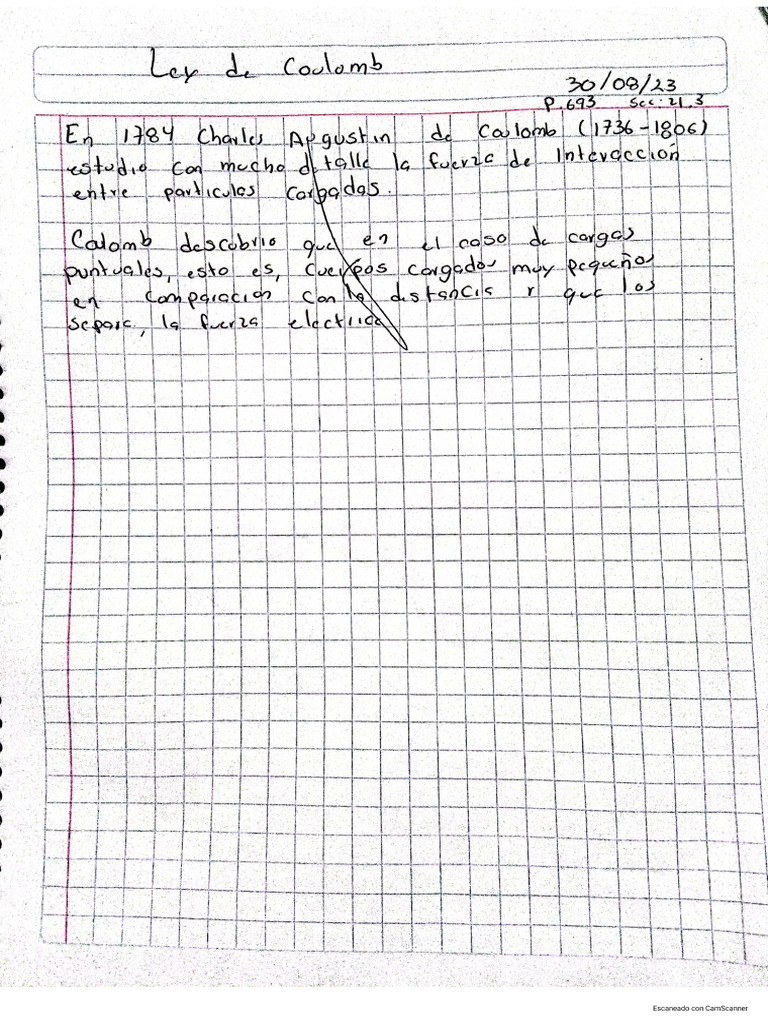 Ley de Coulomb
30/08/23
P.693 Sec: 21.3
En 1784 Charles Augustin de Coulomb (1736-1806)
estudio con mucho detalle la fuerza de Interacción
entre particulas cargadas.
Colomb descubrio que en el caso de cargas
puntuales, esto es, cuerpos cargados muy pequeños
en comparacion con la distancia r que los
separa, la fuerza electrica
Escaneado con CamScanner